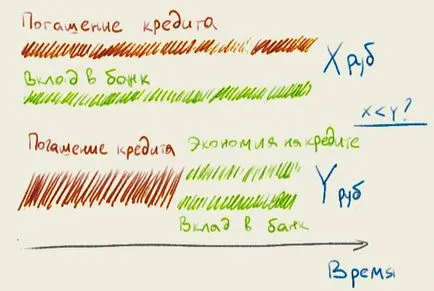 Погашение кредита
X руб
Вклад в банк
X<Y?
Погашение кредита
Экономия на кредите
Y руб
Вклад в банк
Время